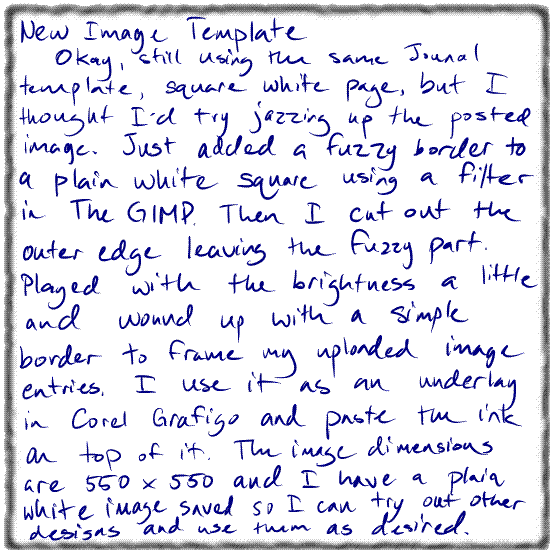 New Image Template
Okay, still using the same Jounal
template, square white page, but I
thought I'd try jazzing up the posted
image. Just added a fuzzy border to
a plain white square using a filter
in The GIMP. Then I cut out the
outer edge leaving the fuzzy part.
Played with the brightness a little
and wound up with a simple
border to frame my uploaded image
entries. I use it as an underlay
in Corel Grafigo and paste the ink
on top of it. The image dimensions
are 550 x 550 and I have a plain
white image saved so I can try out other
designs and use them as desired.